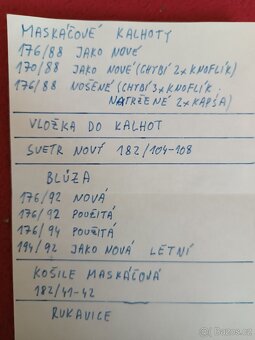 MASKÁČOVÉ KALHOTY
176/88 JAKO NOVÉ
170/88 JAKO NOVÉ (CHYBÍ 2x KNOFLÍK)
176/88 NOŠENÉ (CHYBÍ 3x KNOFLÍK
NATRŽENÉ 2x KAPSA)
VLOŽKA DO KALHOT
SVETR NOVÝ 182/104-108
BLŮZA
176/92 NOVÁ
176/92 POUŽITÁ
176/94 POUŽITÁ
194/92 JAKO NOVÁ LETNÍ
KOŠILE MASKÁČOVÁ
182/41-42
RUKAVICE